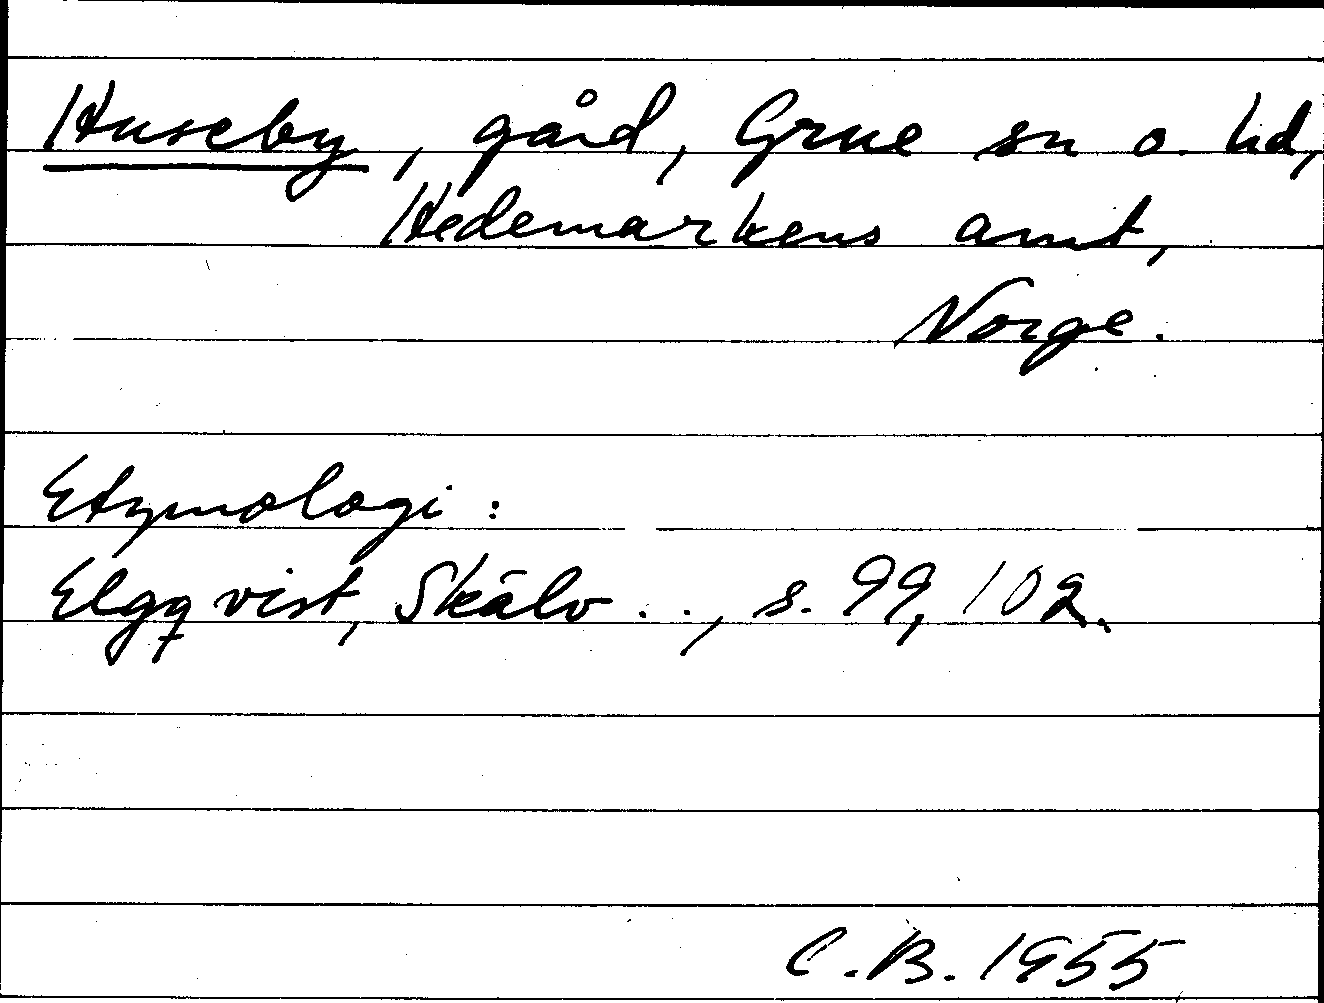 Huseby, gård, Grue sn o. hd,
Hedemarkens amt,
Norge.
Etymologi:
Elgqvist, Skälv . . , s. 99, 102.
C.B. 1955